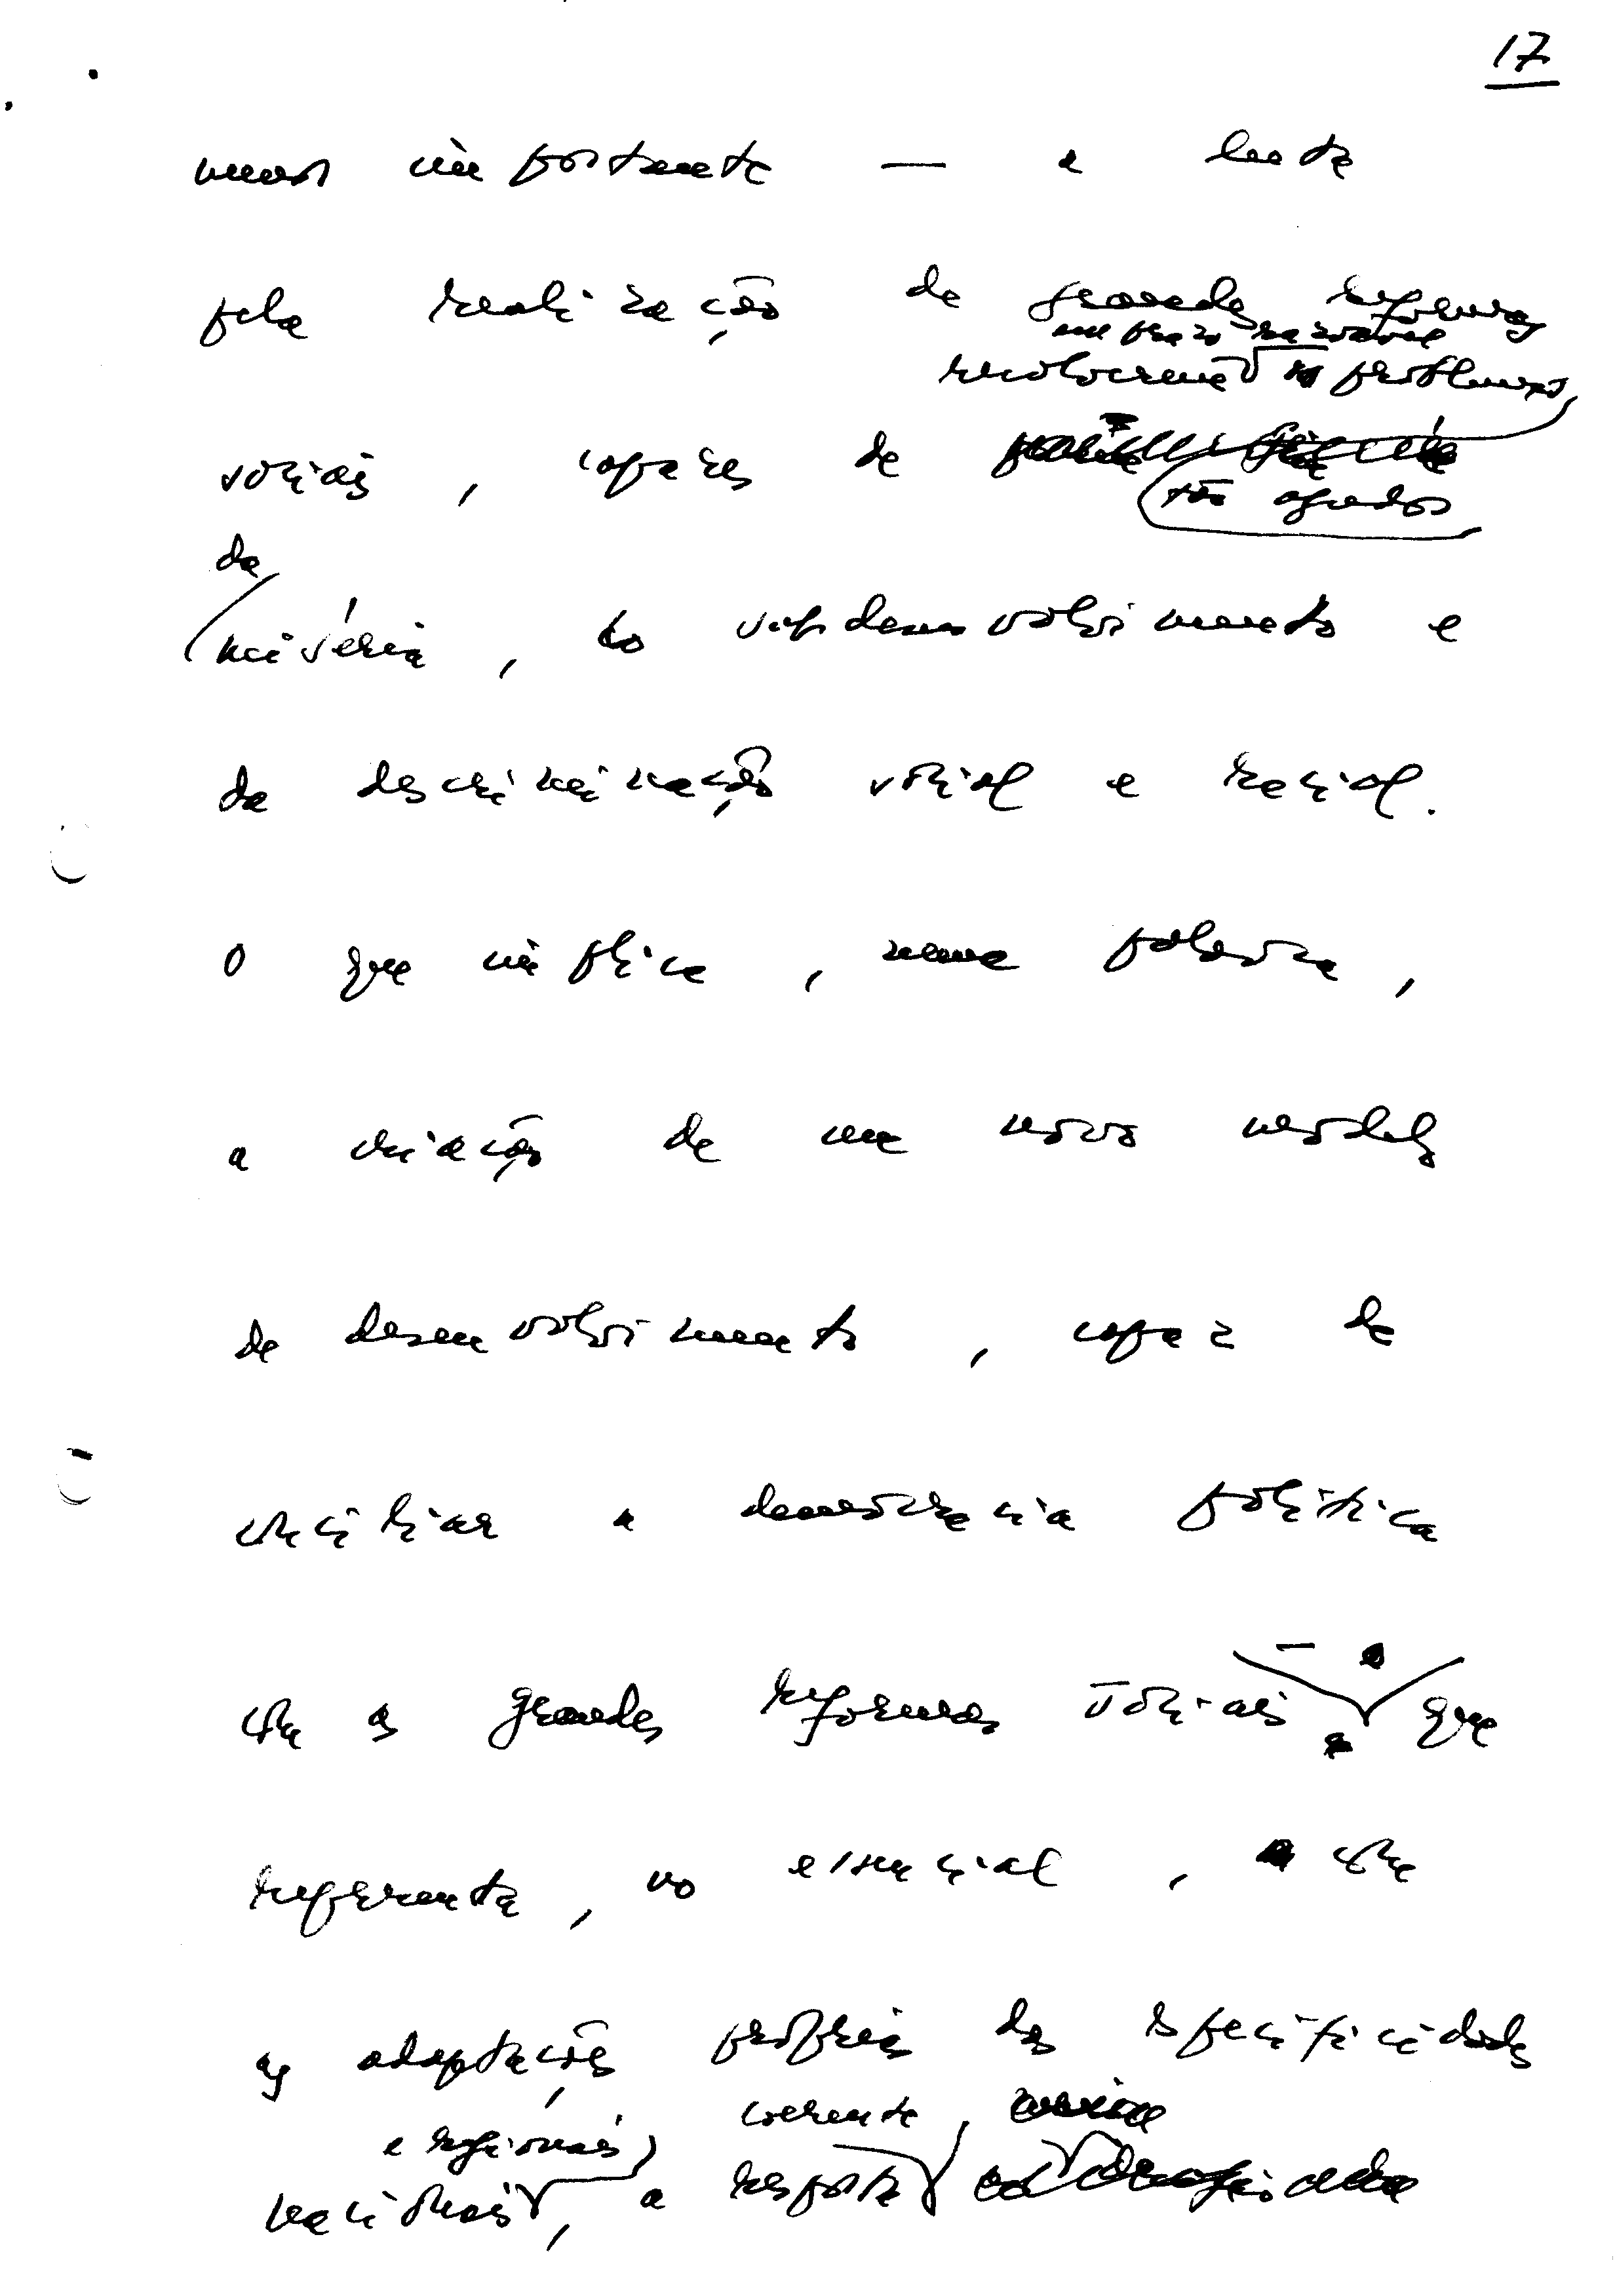 17
menos importante — a luta
pela realização de grandes reformas
em prazo razoável
resolverem os problemas
sociais, capazes de
tão agudos
da
miséria, do subdesenvolvimento e
da descriminação social e racial.
O que implica, numa palavra,
a criação de um novo modelo
de desenvolvimento, capaz de
conciliar a democracia política
com as grandes reformas sociais — que
representa, no essencial, com
as adaptações próprias das especificidades
coerente,
e regionais
nacionais, a resposta